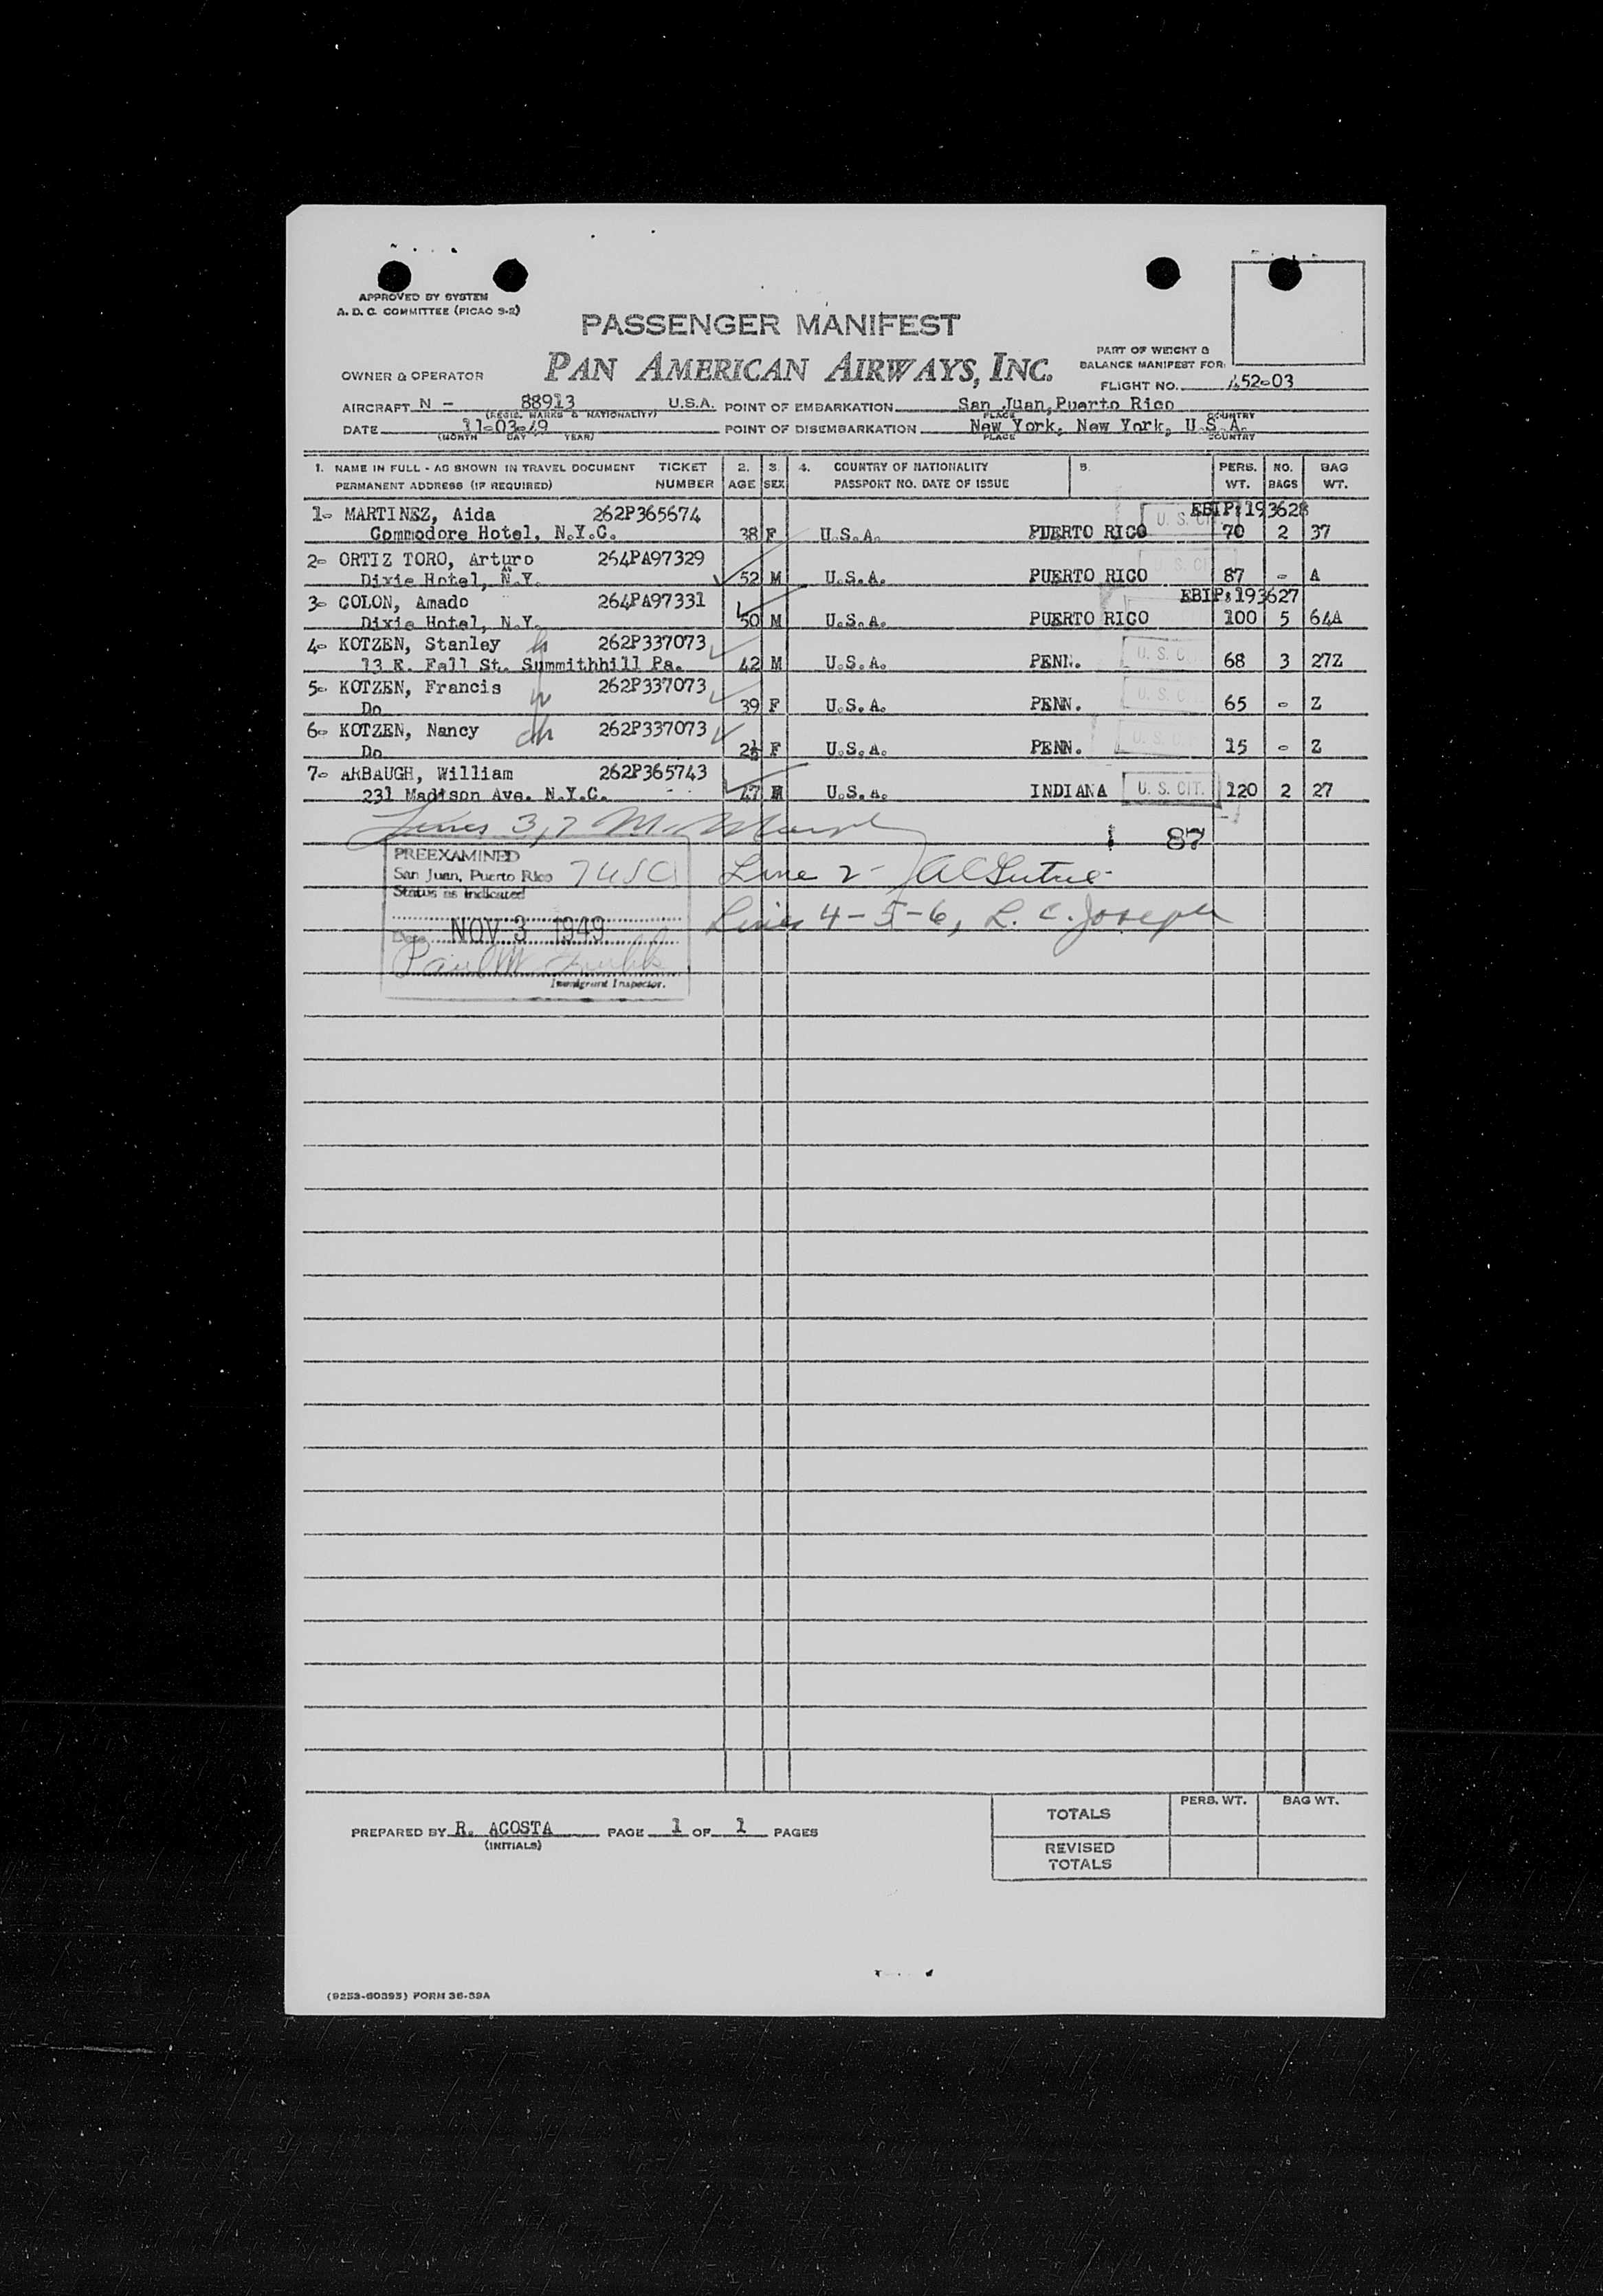 APPROVED BY SYSTEM
A. D. C. COMMITTEE (PICAO 9-2)
PASSENGER MANIFEST
PART OF WEIGHT &
BALANCE MANIFEST FOR:
OWNER & OPERATOR PAN AMERICAN AIRWAYS, INC.
FLIGHT NO. 452-03
AIRCRAFT N - 88913 U.S.A. POINT OF EMBARKATION San Juan, Puerto Rico
(REGIS. MARKS & NATIONALITY) PLACE COUNTRY
DATE 11-03-49 POINT OF DISEMBARKATION New York, New York, U.S.A.
(MONTH DAY YEAR) PLACE COUNTRY
1. NAME IN FULL - AS SHOWN IN TRAVEL DOCUMENT TICKET 2. 3. 4. COUNTRY OF NATIONALITY 5. PERS. NO. BAG
PERMANENT ADDRESS (IF REQUIRED) NUMBER AGE SEX PASSPORT NO. DATE OF ISSUE WT. BAGS WT.
1- MARTINEZ, Aida 262P365674 EBIP:193628
Commodore Hotel, N.Y.C. 38 F U.S.A. PUERTO RICO U. S. CIT. 70 2 37
2- ORTIZ TORO, Arturo 264PA97329
Dixie Hotel, N.Y. 52 M U.S.A. PUERTO RICO U. S. CI 87 - A
3- COLON, Amado 264PA97331 EBIP:193627
Dixie Hotel, N.Y. 50 M U.S.A. PUERTO RICO 100 5 64A
4- KOTZEN, Stanley 262P337073
13 E. Fall St. Summithhill Pa. 42 M U.S.A. PENN. U. S. C 68 3 27Z
5- KOTZEN, Francis 262P337073
Do 39 F U.S.A. PENN. U. S. C 65 - Z
6- KOTZEN, Nancy 262P337073
Do 2½ F U.S.A. PENN. U. S. C 15 - Z
7- ARBAUGH, William 262P365743
231 Madison Ave. N.Y.C. 47 M U.S.A. INDIANA U. S. CIT. 120 2 27
Lines 3,7
87
PREEXAMINED
San Juan, Puerto Rico 7USC Line 2-
Status as Indicated
Lines 4-5-6, L. C. Joseph
Date NOV 3 1949
Paul
Immigrant Inspector.
PREPARED BY R. ACOSTA PAGE 1 OF 1 PAGES
(INITIALS)
PERS. WT. BAG WT.
TOTALS
REVISED
TOTALS
(9253-60393) FORM 36-39A